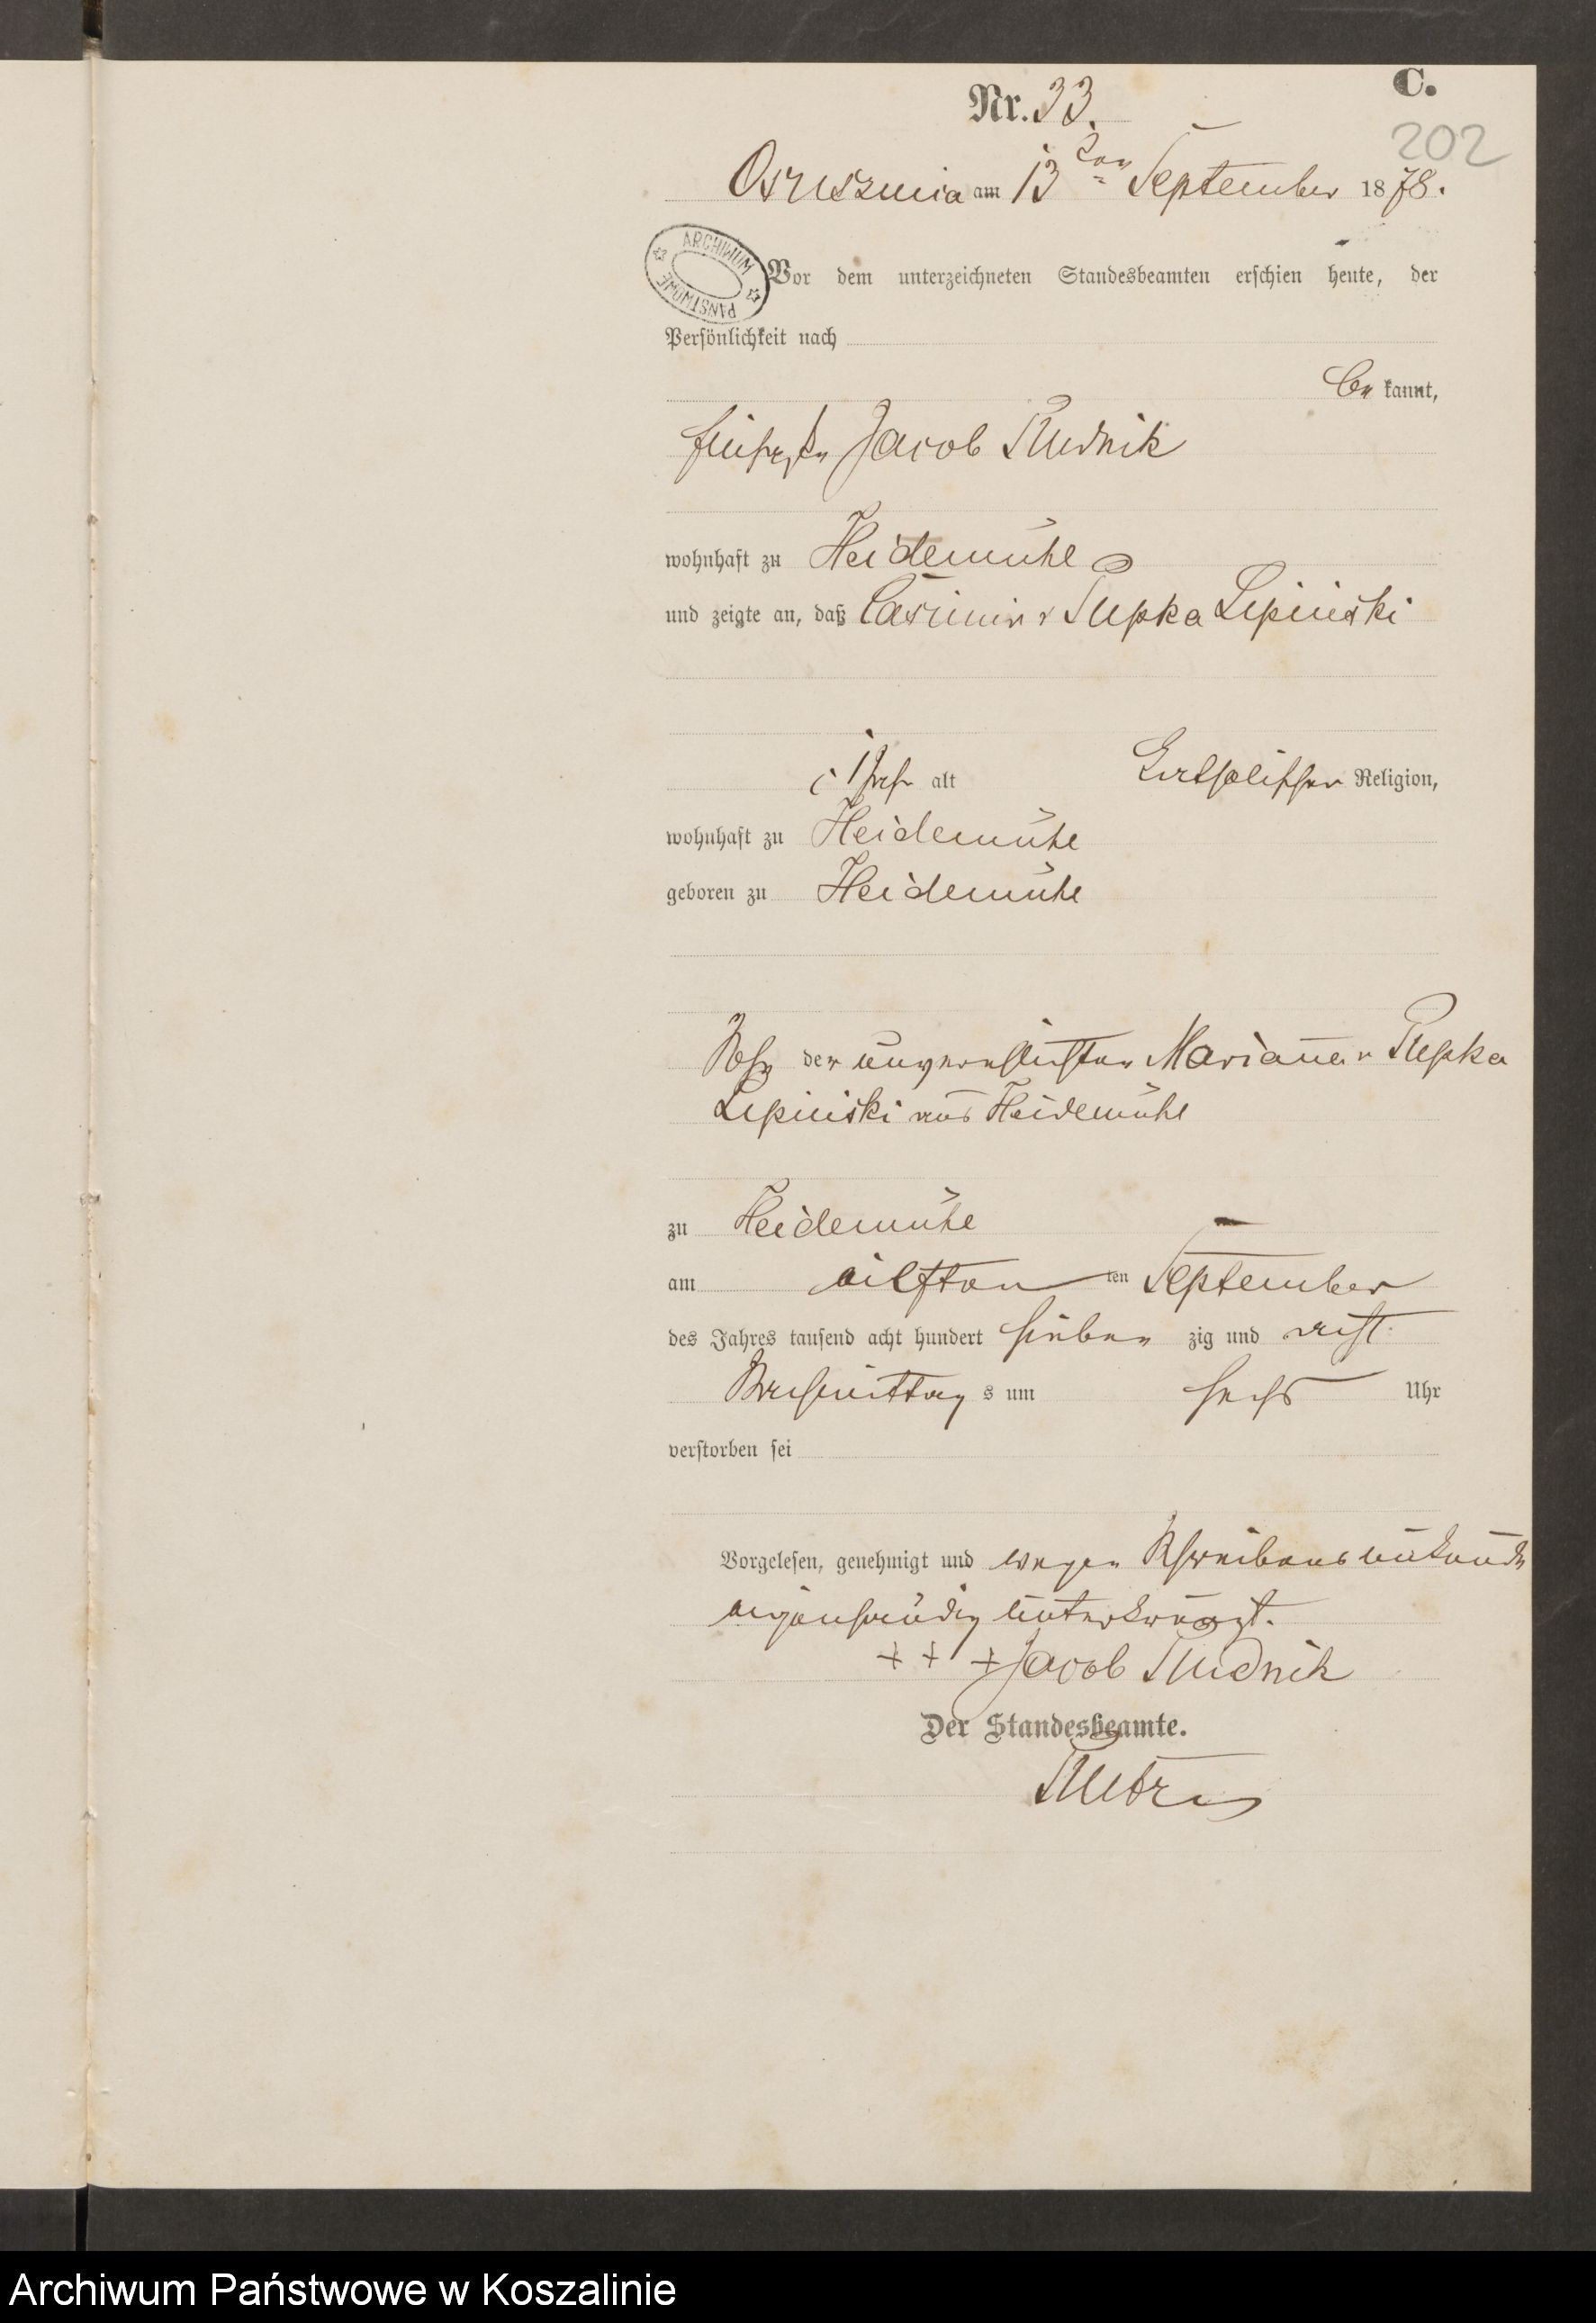 C.
Nr. 33.
202
Osuszniza am 13ten September 1878.
ARCHIWUM PAŃSTWOWE
Vor dem unterzeichneten Standesbeamten erschien heute, der
Persönlichkeit nach
be kannt,
Jacob Rudnik
wohnhaft zu Heidemühl
und zeigte an, daß Casimir v Pupka Lipinski
1 Jahr alt Catholischer Religion,
wohnhaft zu Heidemühl
geboren zu Heidemühl
Sohn der unverehlichten Marianna v Pupka
Lipinski aus Heidemühl
zu Heidemühl
am eilften ten September
des Jahres tausend acht hundert sieben zig und acht
Nachmittag s um sechs Uhr
verstorben sei
Vorgelesen, genehmigt und wegen Schreibensunkunde
eigenhändig unterkreuzt.
+ + + Jacob Rudnik
Der Standesbeamte.
Archiwum Państwowe w Koszalinie